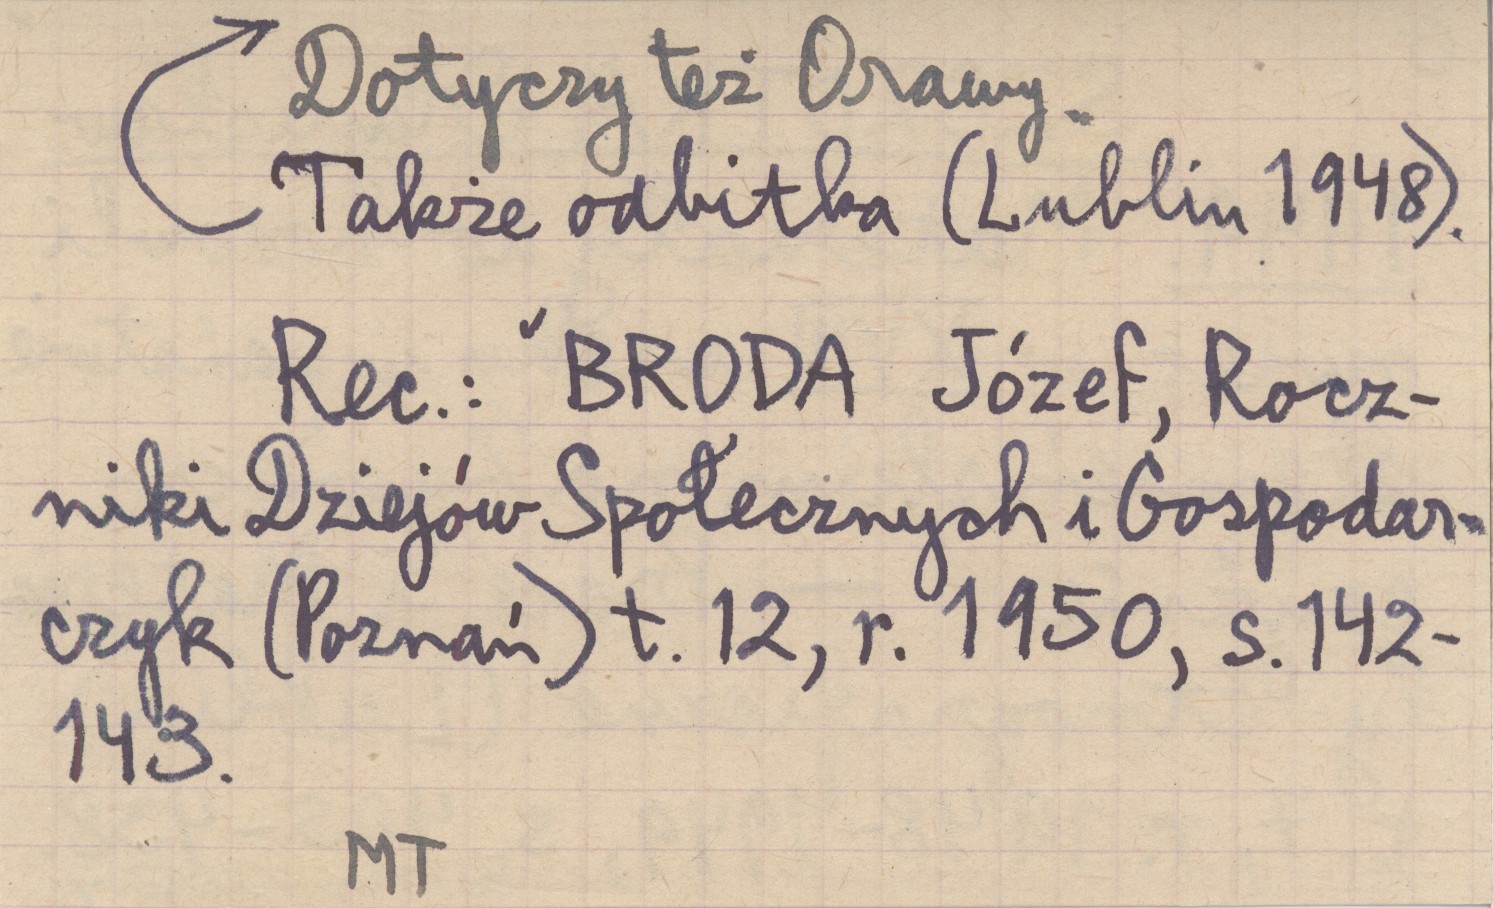 Dotyczy też Orawy.
Także odbitka (Lublin 1948).
Rec.: BRODA Józef, Rocz-
niki Dziejów Społecznych i Gospodar-
czyk (Poznań) t. 12, r. 1950, s. 142-
143.
MT